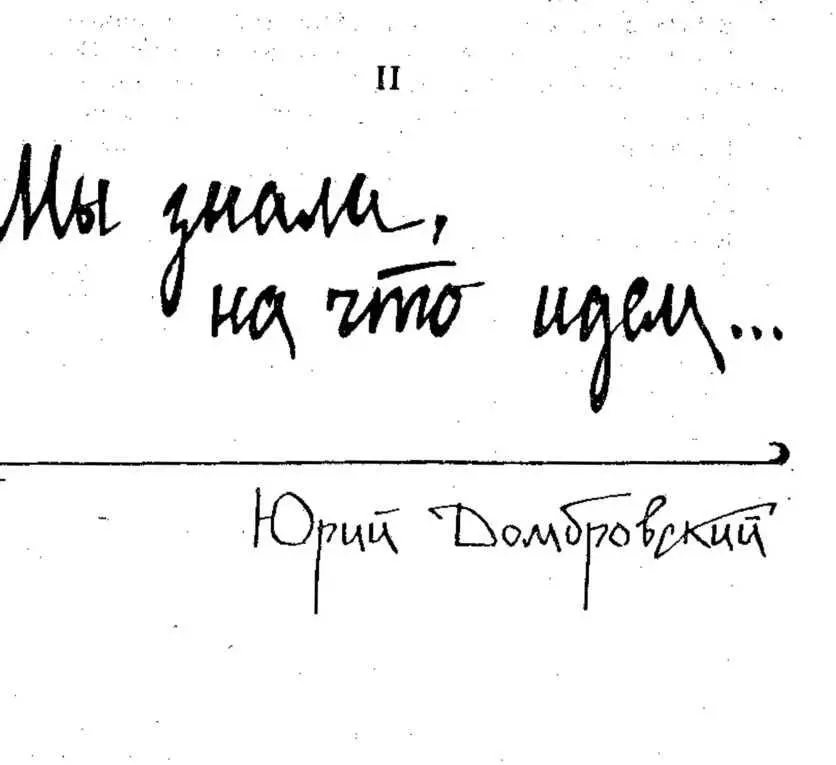 II
Мы знали,
на что идем...
Юрий Домбровский